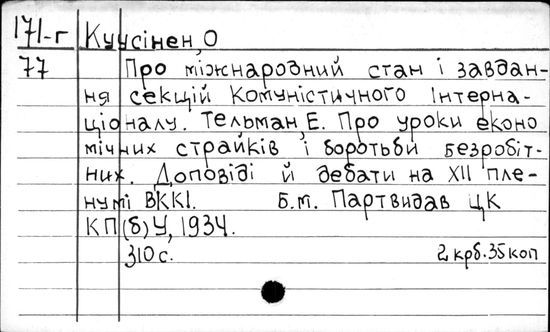 171-г Куусінен, О
77 Про міжнародний стан і завдан-
ня секцій Комуністичного Інтерна-
ціоналу. Тельман, Е. Про уроки еконо
мічних страйків і боротьби безробіт-
них. Доповіді й дебати на XII пле-
нумі ВККІ. Б.м. Партвидав ЦК
КП(б)У, 1934.
310 с. 2 крб. 35 коп